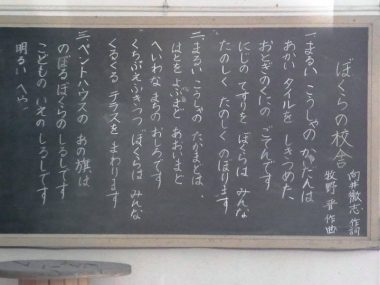 ぼくらの校舎
向井徹志 作詞
牧野 晋 作曲
一、まるい こうしゃの かいだんは
あかい タイルを しきつめた
おとぎのくにの ごてんです
にじの てすりを ぼくらは みんな
たのしく たのしく のぼります
二、まるい こうしゃの たかまどは、
はとを よぶまど あおいまど
へいわな まるの おしろです
くちぶえふきつつ ぼくらは みんな
くるくる テラスを まわります
三、ペントハウスの あの旗は
のぼる ぼくらの しるしです
こどもの いえの しるしです
明るい